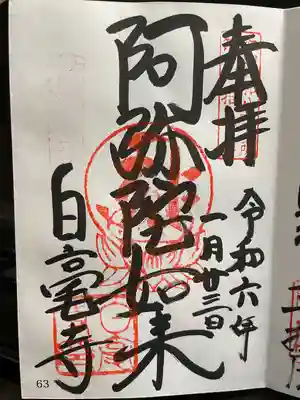 奉拝
令和六年
一月廿三日
阿弥陀如来
白毫寺
63